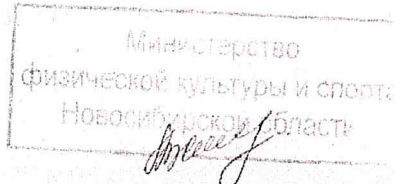 Министерство
физической культуры и спорта
Новосибирской области